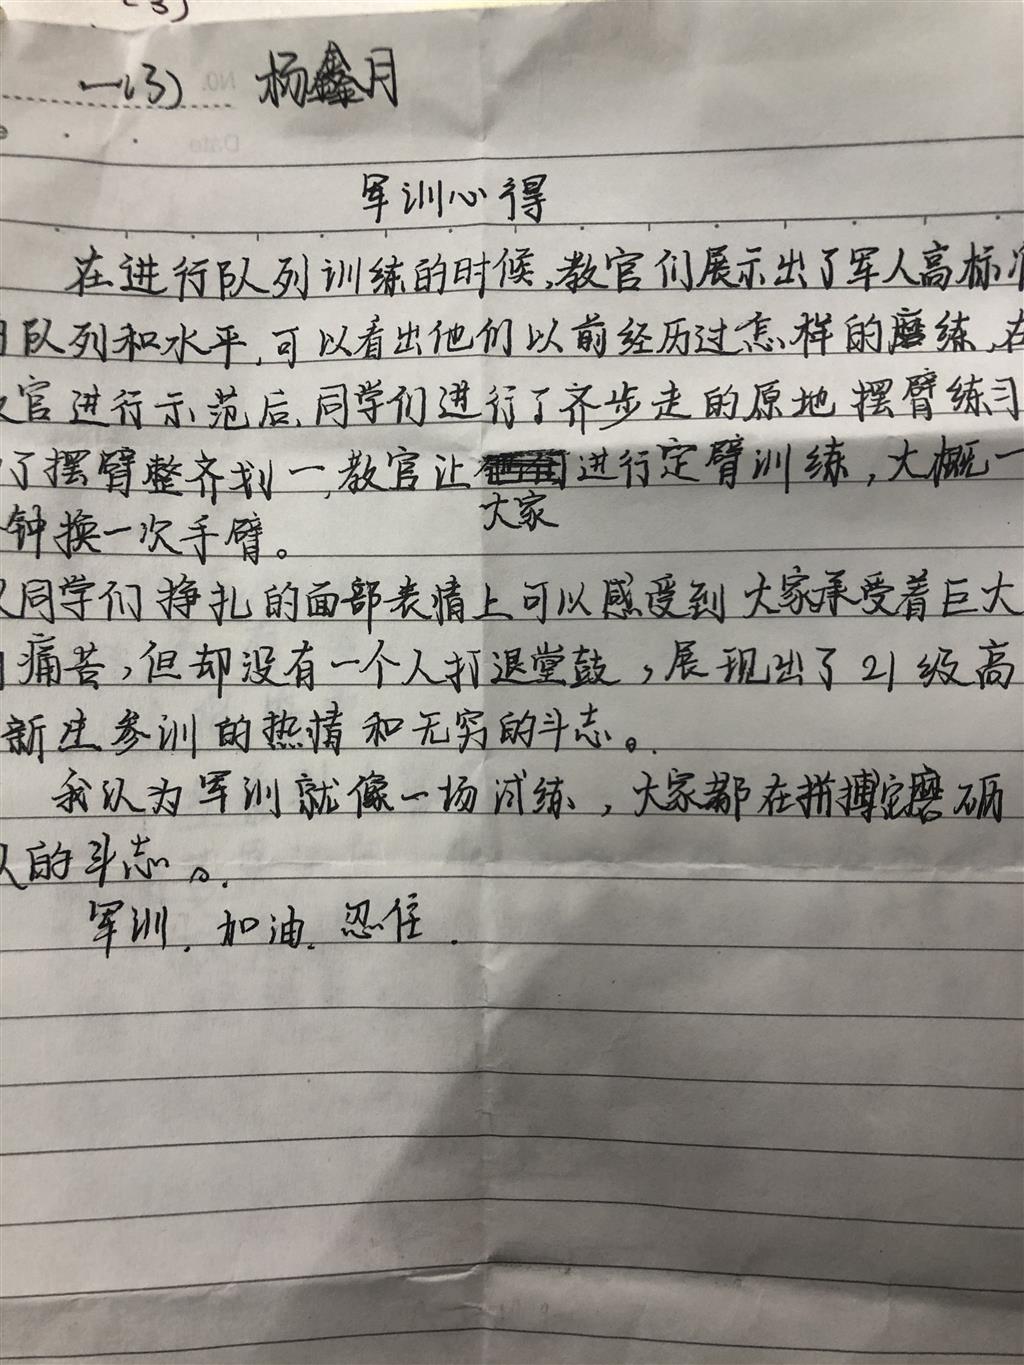 一(3) 杨鑫月
军训心得
在进行队列训练的时候,教官们展示出了军人高标
队列和水平,可以看出他们以前经历过怎样的磨练,在
官进行示范后、同学们进行了齐步走的原地摆臂练习
了摆臂整齐划一,教官让大家进行定臂训练,大概一
钟换一次手臂。
同学们挣扎的面部表情上可以感受到大家承受着巨大
痛苦,但却没有一个人打退堂鼓,展现出了21级高
新生参训的热情和无穷的斗志。
我认为军训就像一场试练,大家都在拼搏磨砺
的斗志。
军训.加油.忍住.